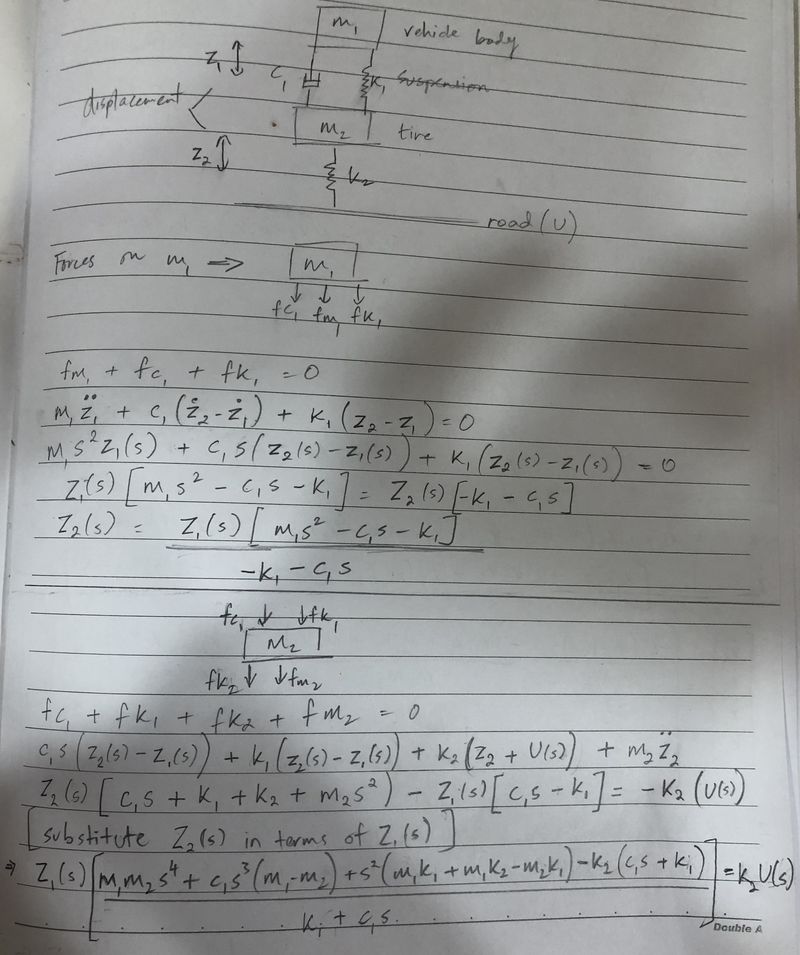 m₁ vehicle body
Z₁ C₁ K₁ Suspention
displacement
m₂ tire
Z₂ k₂
road (U)
Forces on m₁ ⇒ m₁
fc₁ fm₁ fk₁
fm₁ + fc₁ + fk₁ = 0
m₁z̈₁ + c₁(ż₂ - ż₁) + K₁(z₂ - z₁) = 0
M₁s²Z₁(s) + C₁s(Z₂(s) - Z₁(s)) + K₁(Z₂(s) - Z₁(s)) = 0
Z₁(s)[m₁s² - c₁s - k₁] = Z₂(s)[-k₁ - c₁s]
Z₂(s) = Z₁(s)[m₁s² - c₁s - k₁]
-k₁ - c₁s
fc₁ fk₁
M₂
fk₂ fm₂
fc₁ + fk₁ + fk₂ + fm₂ = 0
c₁s(Z₂(s) - Z₁(s)) + k₁(z₂(s) - Z₁(s)) + k₂(Z₂ + U(s)) + m₂z̈₂
Z₂(s)[c₁s + k₁ + k₂ + m₂s²) - Z₁(s)[c₁s - k₁] = -K₂(U(s))
[substitute Z₂(s) in terms of Z₁(s)]
⇒ Z₁(s)[m₁m₂s⁴ + c₁s³(m₁-m₂) + s²(m₁k₁ + m₁k₂ - m₂k₁) - k₂(c₁s + k₁)] = k₂U(s)
k₁ + c₁s
Double A